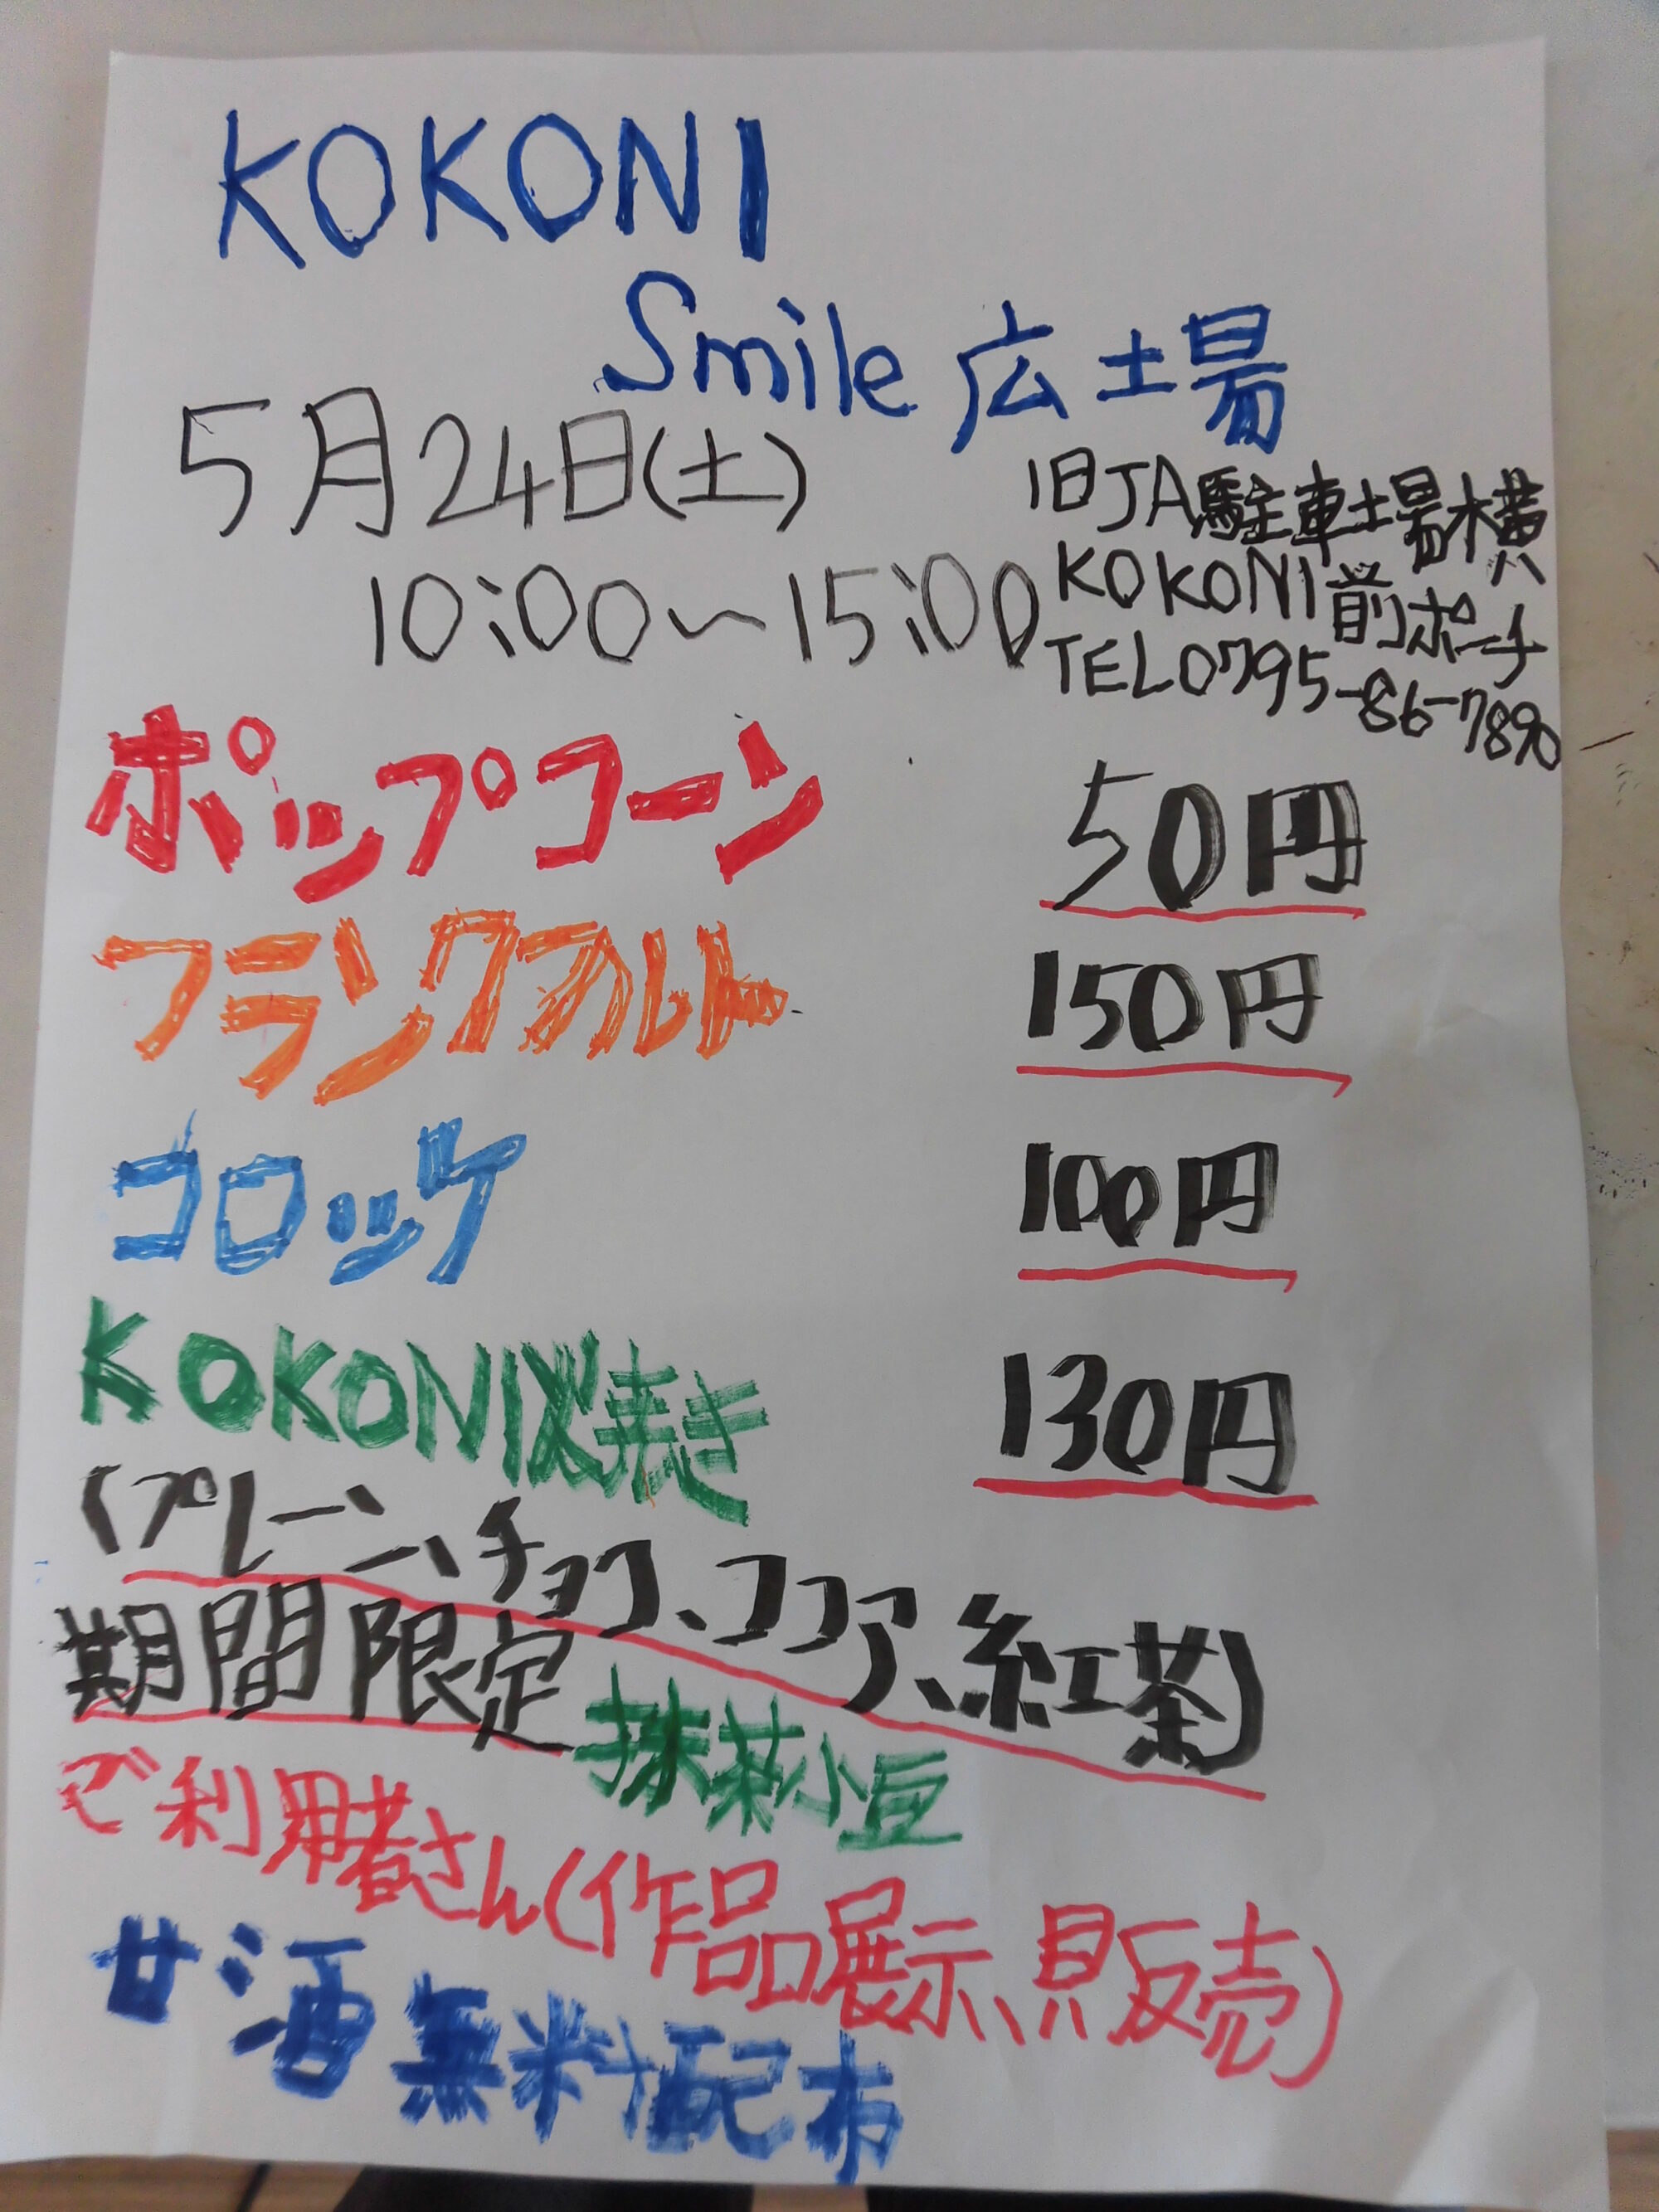 KOKONI
Smile 広場
5月24日(土)
10:00~15:00
旧JA駐車場横
KOKONI前ポーチ
TEL0795-86-7890
ポップコーン 50円
フランクフルト 150円
コロッケ 100円
KOKONI焼き 130円
(プレーン、チョコ、ココア、紅茶)
期間限定 抹茶小豆
ご利用者さん(作品展示、販売)
甘酒無料配布